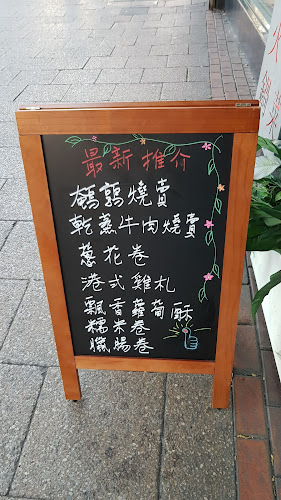 最新推介
鵪鶉燒賣
乾蒸牛肉燒賣
蔥花卷
港式雞札
飄香蘿蔔酥
糯米卷
臘腸卷